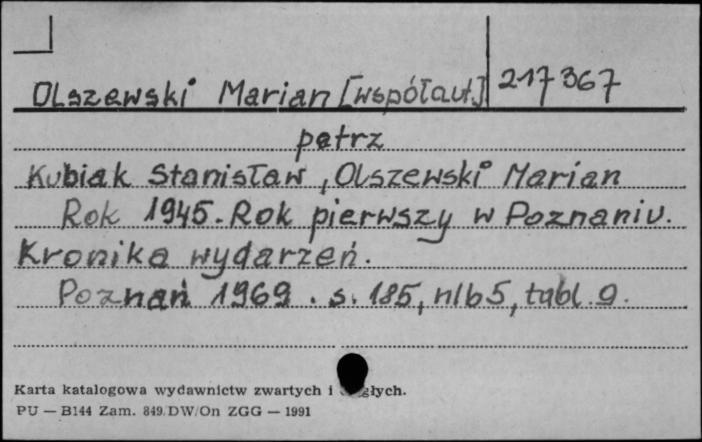 Olszewski Marian [współaut.] 217367
patrz
Kubiak Stanisław, Olszewski Marian
Rok 1945. Rok pierwszy w Poznaniu.
Kronika wydarzeń.
Poznań 1969. s. 185, nlb 5, tabl. 9.
Karta katalogowa wydawnictw zwartych i
PU — B144 Zam. 849/DW/On ZGG — 1991